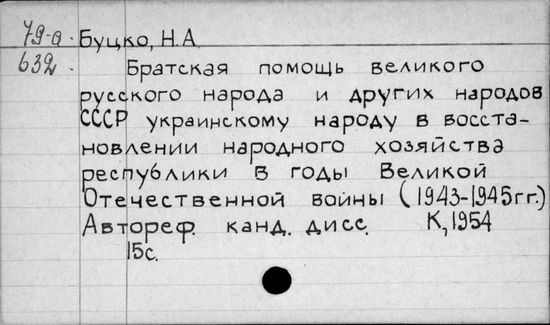 79-а Буцко, Н.А.
632 Братская помощь великого
русского народа и других народов
СССР украинскому народу в восста-
новлении народного хозяйства
республики в годы Великой
Отечественной войны (1943-1945гг.)
Автореф. канд. дисс. К, 1954
15с.